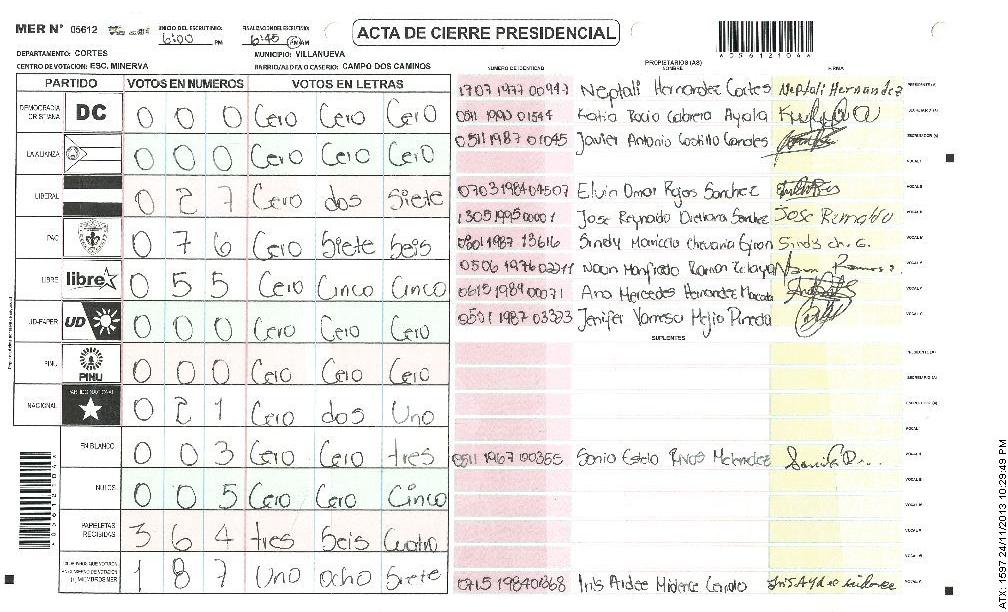 MER N° 05612
INICIO DEL ESCRUTINIO: 6:00 PM
FINALIZACION DEL ESCRUTINIO: 6:45 PM
ACTA DE CIERRE PRESIDENCIAL
A05612106A
DEPARTAMENTO: CORTES
MUNICIPIO: VILLANUEVA
CENTRO DE VOTACION: ESC. MINERVA
BARRIO/ALDEA O CASERIO: CAMPO DOS CAMINOS
PARTIDO VOTOS EN NUMEROS VOTOS EN LETRAS
DEMOCRACIA CRISTIANA DC 0 0 0 Cero Cero Cero
LA ALIANZA 0 0 0 Cero Cero Cero
LIBERAL 0 2 7 Cero dos Siete
PAC 0 7 6 Cero Siete Seis
LIBRE libre 0 5 5 Cero Cinco Cinco
UD-FAPER UD 0 0 0 Cero Cero Cero
PINU PINU 0 0 0 Cero Cero Cero
NACIONAL PARTIDO NACIONAL 0 2 1 Cero dos Uno
EN BLANCO 0 0 3 Cero Cero tres
NULOS 0 0 5 Cero Cero Cinco
PAPELETAS RECIBIDAS 3 6 4 tres Seis Cuatro
1 8 7 Uno ocho Siete
NUMERO DE IDENTIDAD PROPIETARIOS (AS) NOMBRE FIRMA
1707 1977 00947 Neptali Hernandez Cortes Neptali Hernandez
0511 1990 01544 Katia Rocio Cabrera Ayala
0511 1987 01045 Javier Antonio Castillo Canales
0703 1984 04507 Elvin Omar Rojas Sanchez
1305 1995 00001 Jose Reynaldo Sanchez Jose
0801 1987 13616 Sindy Echevarria Giron Sindy ch. G.
0506 1976 02211
0615 1989 00071 Ana Mercedes Hernandez
0501 1987 03323 Jenifer Vanessa Mejia Pineda
SUPLENTES
0511 1967 00355 Sonia Estela Rivas Melendez
0715 1984 01368 Iris Aidee
ATX: 1597 24/11/2013 10:29:49 PM